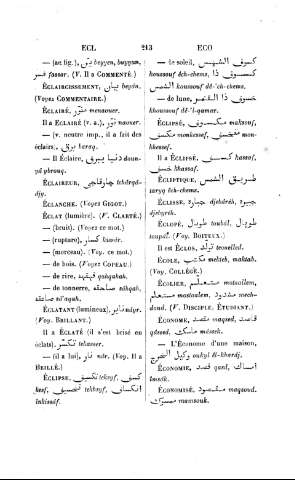 ECL 213 ECO
— (au fig.), بيّن beyyen, bayyan,
فسر fassar. (V. Il a COMMENTÉ.)
ÉCLAIRCISSEMENT, بيان beyân.
(Voyez COMMENTAIRE.)
ÉCLAIRÉ, منوّر menaouer.
Il a ÉCLAIRÉ (v. a.), نوّر naouer.
— (v. neutre imp., il a fait des
éclairs), برق baraq.
— Il Éclaire, دنيا يبرق dounya
yâbrouq.
ÉCLAIREUR,
ÉCLANCHE. (Voyez GIGOT.)
ÉCLAT (lumière). (V. CLARTÉ.)
— (bruit). (Voyez ce mot.)
— (rupture), كسار
— (morceau). (Voyez ce mot.)
— de bois. (Voyez COPEAU.)
— de rire, قهقهة qahqahah.
— de tonnerre, صاعقة sâhqah,
صاعقه
ÉCLATANT (lumineux), نايّر nâyr.
(Voy. BRILLANT.)
Il a ÉCLATÉ (il s'est brisé en
éclats), تكسّر
— (il a lui), نار nâr. (Voy. Il a
BRILLÉ.)
ÉCLIPSE, تكسيف teksyf, كسف
kesf, تخسيف tekhsyf, انكساف
inkissâf.
— de soleil, كسوف الشمس
koussouf êch-chems, كسوف ذا
الشمس koussouf dê'l-chems.
— de lune, خسوف ذا القمر
khoussouf dê'l-qamar.
ÉCLIPSÉ, مكسوف maksouf,
مكسّف monkessef, منخسف mon-
khessef.
Il a ÉCLIPSÉ, كسف kassaf,
خسف khassaf.
ÉCLIPTIQUE, طريق الشمس
taryq êch-chems.
ÉCLISSE, جبرة djebêrêh, جبيرة
djebyrêh.
ÉCLOPÉ,
(Voy. BOITEUX.)
Il est ÉCLOS, تولّد touelled.
ÉCOLE, مكتب mekteb, maktab.
(Voy. COLLÈGE.)
ÉCOLIER, متعلّم mutaallem,
معلّم
(V. DISCIPLE, ÉTUDIANT.)
ÉCONOME, مقصد maqsed, قاصد
qâsed, ماسك mâsek.
— L'Économe d'une maison,
وكيل الخرج oukyl êl-khardj.
ÉCONOMIE, قصد qasd, امساك
imsâk.
ÉCONOMISÉ, مقصود maqsoud,
ممسوك mamsouk.